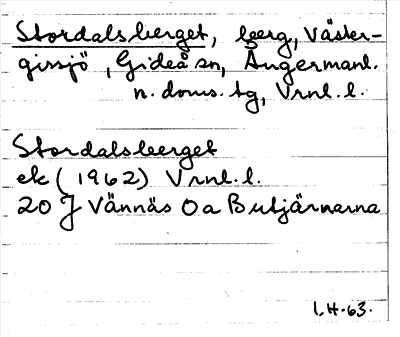 Stordalsberget, berg, Väster-
gissjö, Gideå sn, Ångermanl.
n. doms. tg, Vrnl. l.
Stordalsberget
ek (1962) Vrnl. l.
20 J Vännäs 0 a Butjärnarna
I. H. 63.